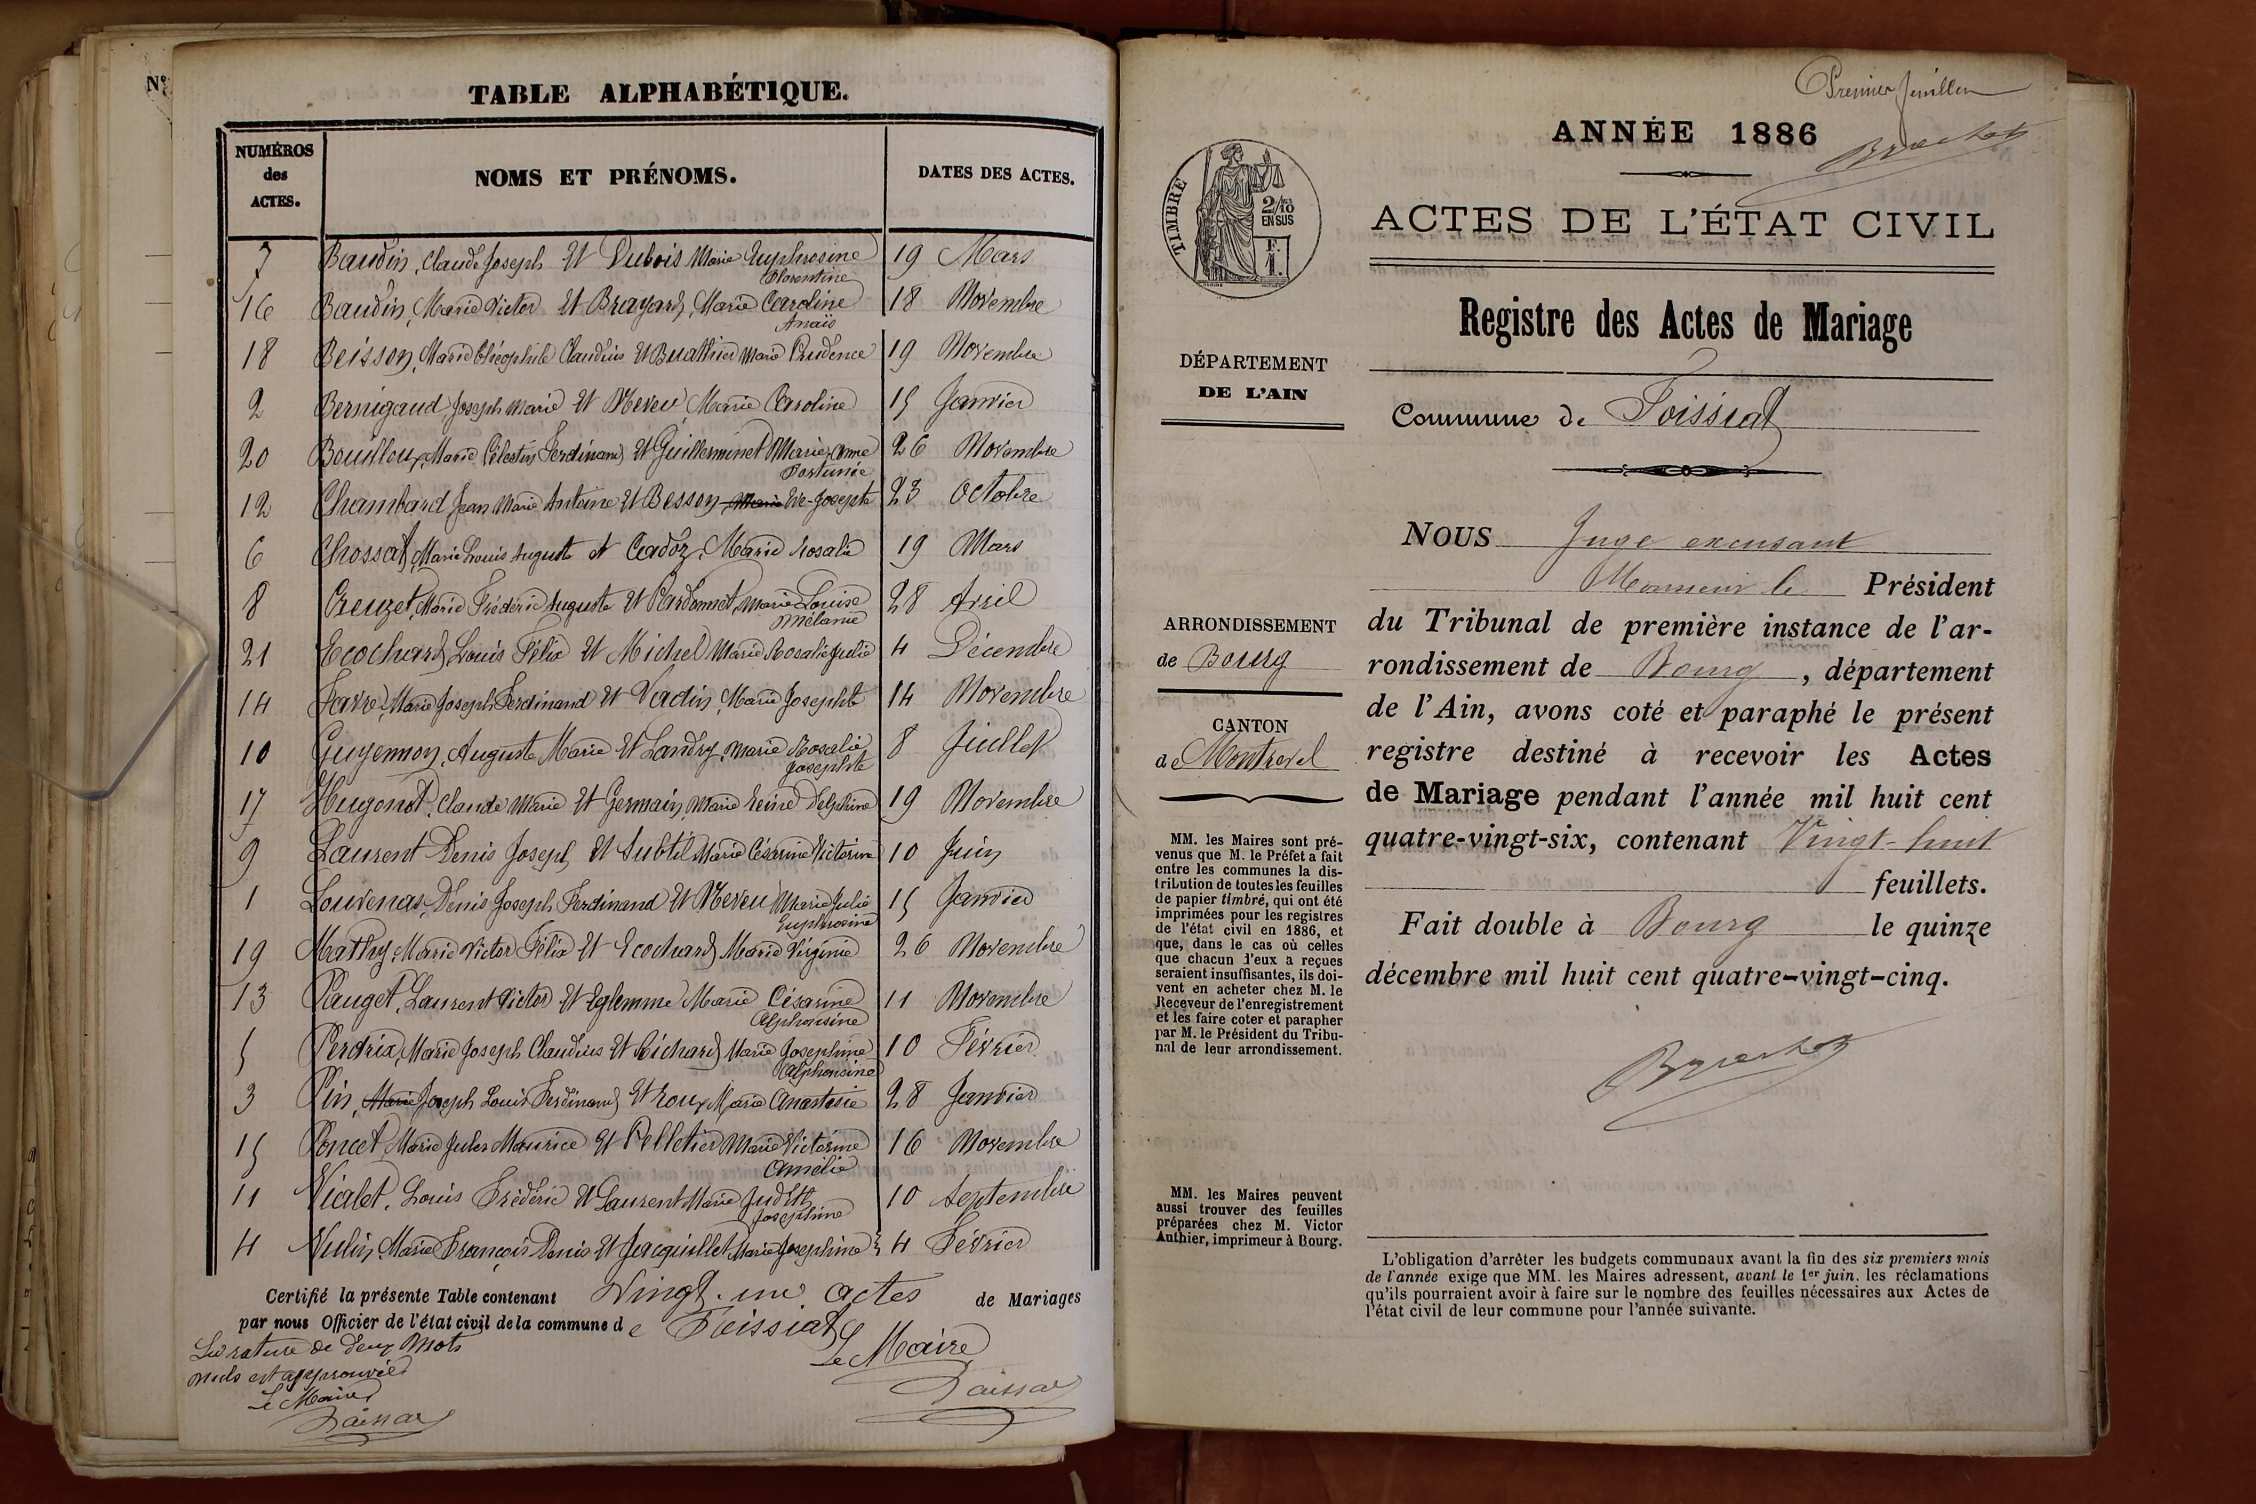 N°
TABLE ALPHABÉTIQUE.
NUMÉROS des ACTES. NOMS ET PRÉNOMS. DATES DES ACTES.
7 Baudin, Claude Joseph Et Dubois Marie Euphrosine Florentine 19 Mars
16 Baudin, Marie Victor Et Brayard, Marie Caroline Anaïs 18 Novembre
18 Beisson, Marie Théophile Claudius Et Buathier Marie Prudence 19 Novembre
2 Bernigaud, Joseph Marie Et Neveu Marie Caroline 15 Janvier
20 Bouilloux, Marie Célestin Ferdinand Et Guillerminet Marie Anne Fortunée 26 Novembre
12 Chambard Jean Marie Antoine Et Besson Marie Eve-Josephte 23 Octobre
6 Chossat, Marie Louis Auguste et Cadoz, Marie Rosalie 19 Mars
8 Creuzet, Marie Frédéric Auguste Et Pardonnet, Marie Louise Mélanie 28 Avril
21 Ecochard, Louis Félix Et Michel Marie Rosalie Julie 4 Décembre
14 Favre, Marie Joseph Ferdinand Et Vadin, Marie Josephte 14 Novembre
10 Guyennon, Auguste Marie Et Landry, Marie Rosalie Josephte 8 Juillet
17 Hugonet, Claude Marie Et Germain, Marie Reine Delphine 19 Novembre
9 Laurent Denis Joseph Et Subtil Marie Césarine Victorine 10 Juin
1 Louvenas, Denis Joseph Ferdinand Et Neveu Marie Julie Euphrosine 15 Janvier
19 Mathy, Marie Victor Félix Et Ecochard Marie Virginie 26 Novembre
13 Pauget, Laurent Victor Et Eglemme Marie Césarine Alphonsine 11 Novembre
5 Perdrix, Marie Joseph Claudius Et Richard Marie Josephine Alphonsine 10 Février
3 Pin, Marie Joseph Louis Ferdinand Et Roux Marie Anastasie 28 Janvier
15 Poncet, Marie Jules Maurice Et Pelletier Marie Victorine Amélie 16 Novembre
11 Vialet, Louis Frédéric Et Laurent Marie Judith Josephine 10 Septembre
4 Vulin, Marie François Denis Et Jacquillet Marie Josephine 4 Février
Certifié la présente Table contenant Vingt-un actes de Mariages
par nous Officier de l'état civil de la commune de Foissiat
La rature de deux mots
nuls est approuvée
Le Maire
Le Maire
Premier feuillet
ANNÉE 1886
TIMBRE
2/10 EN SUS
F. 1.
ACTES DE L'ÉTAT CIVIL
Registre des Actes de Mariage
DÉPARTEMENT
DE L'AIN
Commune de Foissiat
NOUS Juge excusant
Monsieur le Président
du Tribunal de première instance de l'ar-
rondissement de Bourg, département
de l'Ain, avons coté et paraphé le présent
registre destiné à recevoir les Actes
de Mariage pendant l'année mil huit cent
quatre-vingt-six, contenant Vingt-huit
feuillets.
Fait double à Bourg le quinze
décembre mil huit cent quatre-vingt-cinq.
ARRONDISSEMENT
de Bourg
CANTON
de Montrevel
MM. les Maires sont pré-
venus que M. le Préfet a fait
entre les communes la dis-
tribution de toutes les feuilles
de papier timbré, qui ont été
imprimées pour les registres
de l'état civil en 1886, et
que, dans le cas où celles
que chacun d'eux a reçues
seraient insuffisantes, ils doi-
vent en acheter chez M. le
Receveur de l'enregistrement
et les faire coter et parapher
par M. le Président du Tribu-
nal de leur arrondissement.
MM. les Maires peuvent
aussi trouver des feuilles
préparées chez M. Victor
Authier, imprimeur à Bourg.
L'obligation d'arrêter les budgets communaux avant la fin des six premiers mois
de l'année exige que MM. les Maires adressent, avant le 1er juin, les réclamations
qu'ils pourraient avoir à faire sur le nombre des feuilles nécessaires aux Actes de
l'état civil de leur commune pour l'année suivante.